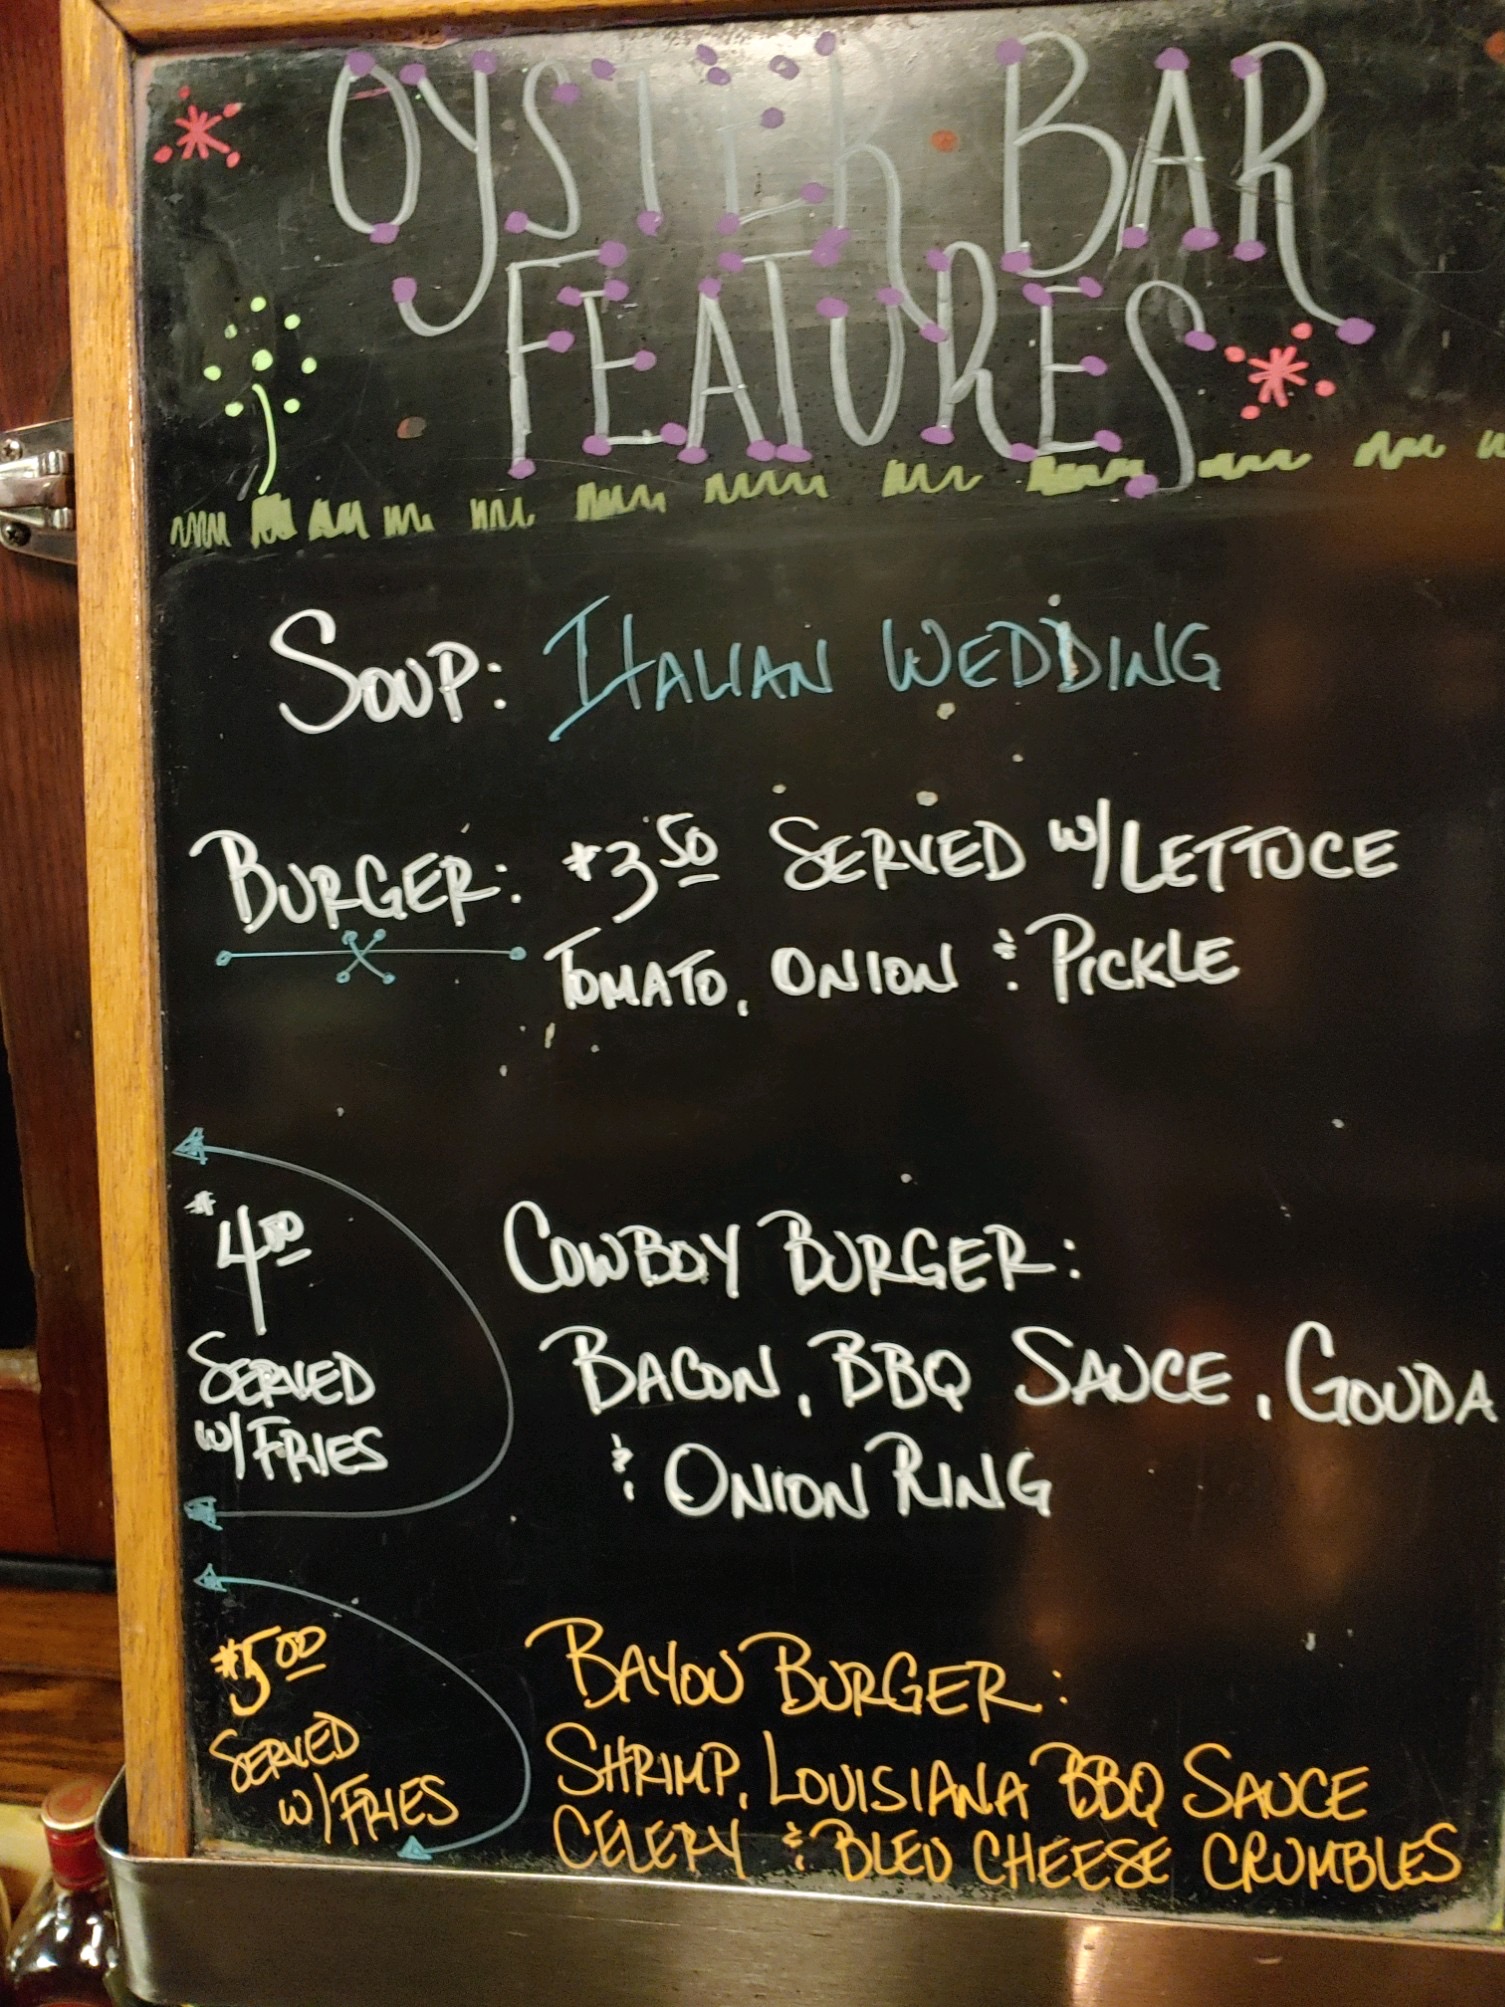 OYSTER BAR
FEATURES
SOUP: ITALIAN WEDDING
BURGER: $3.50 SERVED W/ LETTUCE
TOMATO, ONION & PICKLE
$4.00
SERVED
W/ FRIES
COWBOY BURGER:
BACON, BBQ SAUCE, GOUDA
& ONION RING
$5.00
SERVED
W/ FRIES
BAYOU BURGER:
SHRIMP, LOUISIANA BBQ SAUCE
CELERY & BLEU CHEESE CRUMBLES